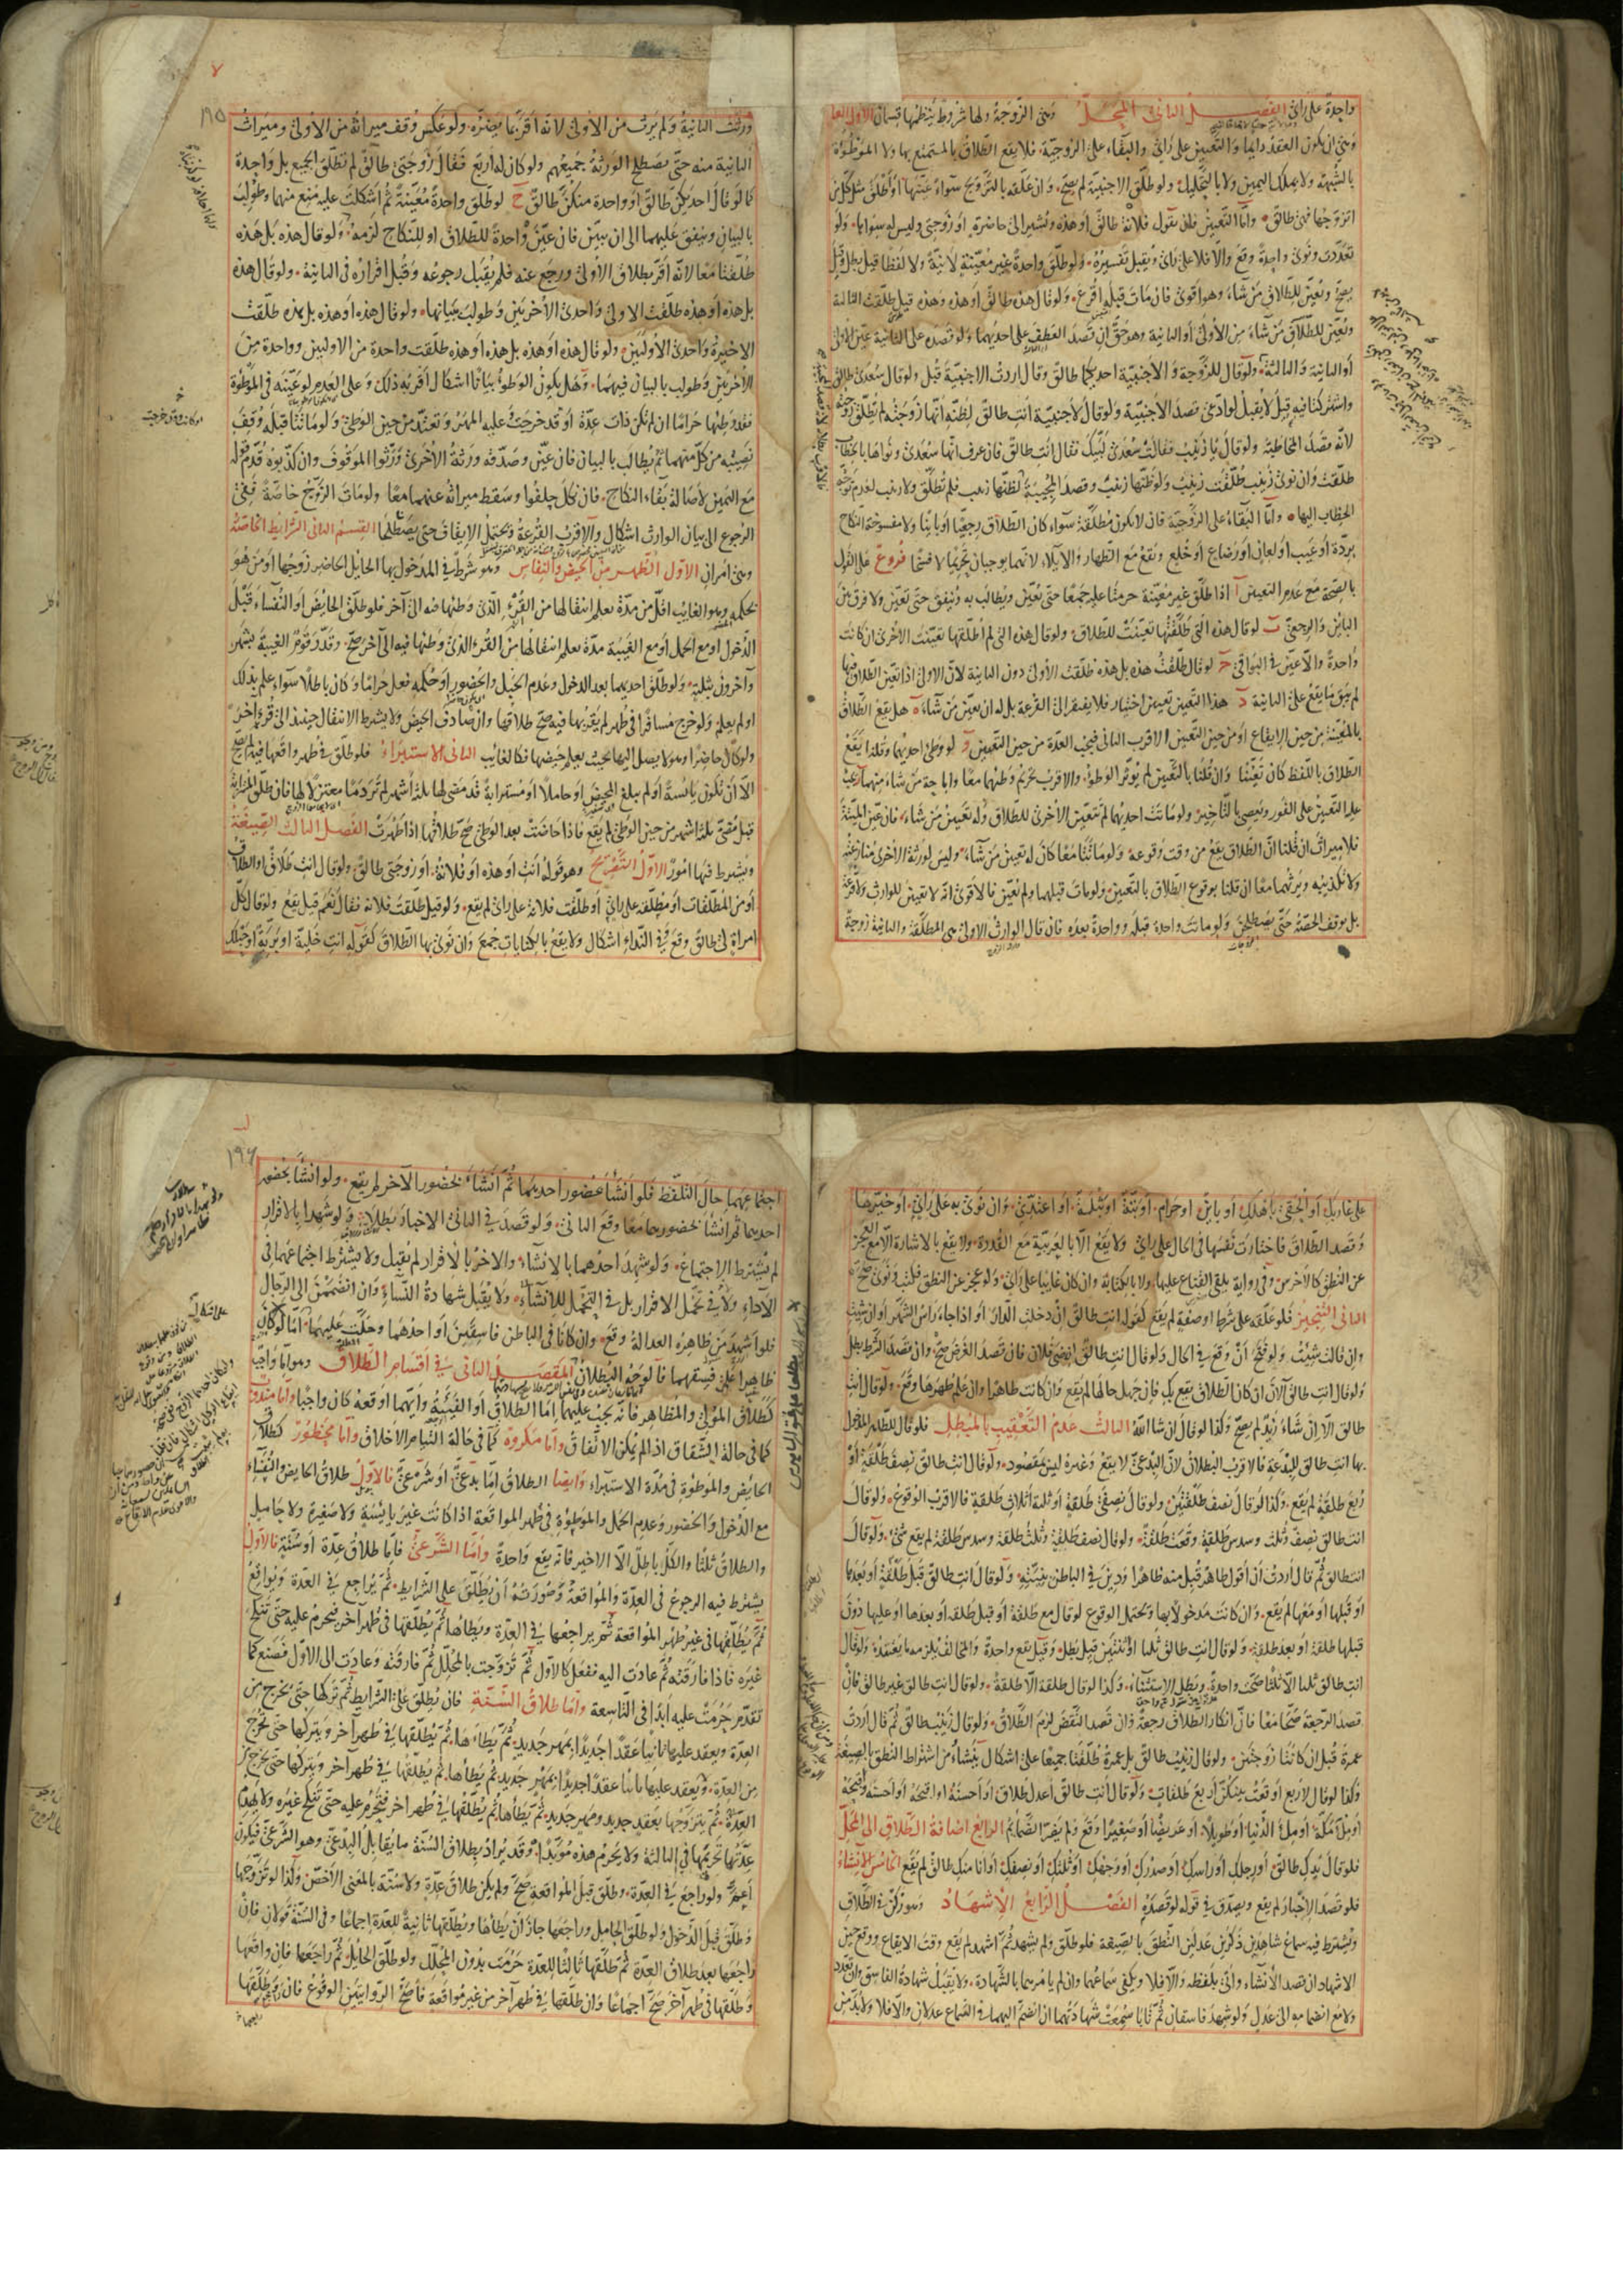 واحدة على رأي الفصل الثاني المحل وهي الزوجة ولها شروط ينظمها قسمان الاول العام
وهي ان يكون العقد دائما والتعيين على رأي والبقاء على الزوجية فلا يقع الطلاق بالمستمتع بها ولا الموطوءة
بالشبهة ولا بملك اليمين ولا بالتحليل ولو طلق الاجنبية لم يصح وان علقه بالتزويج سواء عينها او اطلق مثل كل من
اتزوجها فهي طالق واما التعيين فان يقول فلانة طالق او هذه ويشير الى حاضرة او زوجتي وليس له سواها ولو
تعددت ونوى واحدة وقع والا فلا على رأي ويقبل تفسيره ولو طلق واحدة غير معينة لا نية ولا لفظا قيل بطل وقيل
يصح ويعين للطلاق من شاء وهو اقوى فان مات قبله اقرع ولو قال هذه طالق او هذه وهذه قيل طلقت الثالثة
ويعين للطلاق من شاء من الاولى او الثانية وهو حق ان قصد العطف على احديهما ولو قصده على الثانية عين الاولى
او الثانية والثالثة ولو قال للزوجة والاجنبية احديكما طالق وقال اردت الاجنبية قبل ولو قال سعدى طالق
واشتركتا فيه قيل لا يقبل لو ادعى قصد الاجنبية ولو قال لاجنبية انت طالق لظنه انها زوجته لم تطلق زوجته
لانه قصد المخاطبة ولو قال يا زينب فقالت سعدى لبيك فقال انت طالق فان عرف انها سعدى ونواها بالخطاب
طلقت وان نوى زينب طلقت زينب ولو ظنها زينب وقصد المجيبة لظنها زينب فلم تطلق ولا زينب لعدم توجه
الخطاب اليها واما البقاء على الزوجية فان لا تكون مطلقة سواء كان الطلاق رجعيا او بائنا ولا مفسوخة النكاح
بردة او عيب او لعان او رضاع او خلع ويقع مع الظهار والايلاء لانهما يوجبان تحريما لا فسخا فروع على القول
بالصحة مع عدم التعيين ا اذا طلق غير معينة حرمتا عليه جمعا حتى يعين ويطالب به وينفق حتى يعين ولا فرق بين
البائن والرجعي ب لو قال هذه التي طلقتها تعينت للطلاق ولو قال هذه التي لم اطلقها تعينت الاخرى ان كانت
واحدة والا عين في البواقي ج لو قال طلقت هذه بل هذه طلقت الاولى دون الثانية لان الاولى اذا تعين الطلاق فيها
لم يبق ما يقع على الثانية د هذا التعيين تعيين اختيار فلا يفتقر الى القرعة بل له ان يعين من شاء ه هل يقع الطلاق
بالمعينة من حين الايقاع او من حين التعيين الاقرب الثاني فيجب العدة من حين التعيين و لو وطئ احديهما وقلنا يقع
الطلاق باللفظ كان تعيينا وان قلنا بالتعيين لم يؤثر الوطؤ والاقرب تحريم وطئهما معا واباحة من شاء منهما ز يجب
عليه التعيين على الفور ويعصي بالتأخير ولو ماتت احديهما لم تتعين الاخرى للطلاق وله تعيين من شاء فان عين الميتة
فلا ميراث ان قلنا ان الطلاق يقع من وقت وقوعه ولو ماتتا معا كان له تعيين من شاء وليس لورثة الاخرى منازعته
ولا تكذيبه ويرثهما معا ان قلنا بوقوع الطلاق بالتعيين ولو مات قبلهما ولم يعين فالاقوى انه لا تعيين للوارث ولا قرعة
بل يوقف الحصة حتى يصطلحن ولو ماتت واحدة قبله وواحدة بعده فان قال الوارث الاولى هي المطلقة والثانية زوجة
ورثت الثانية ولم يرث من الاولى لانه اقر بما يضره ولو عكس وقف ميراثه من الاولى وميراث
الثانية منه حتى يصطلح الورثة جميعهم ولو كان له اربع فقال زوجتي طالق لم تطلق الجميع بل واحدة
كما لو قال احديكن طالق او واحدة منكن طالق ح لو طلق واحدة معينة ثم اشكلت عليه منع منهما وطولب
بالبيان وينفق عليهما الى ان يبين فان عين واحدة للطلاق او للنكاح لزمه ولو قال هذه بل هذه
طلقتا معا لانه اقر بطلاق الاولى ورجع عنه فلم يقبل رجوعه وقبل اقراره في الثانية ولو قال هذه
بل هذه او هذه طلقت الاولى واحدى الاخرتين وطولب ببيانها ولو قال هذه او هذه بل هذه طلقت
الاخيرة واحدى الاولتين ولو قال هذه او هذه بل هذه او هذه طلقت واحدة من الاوليين وواحدة من
الاخرتين وطولب بالبيان فيهما وهل يكون الوطؤ بيانا اشكال اقربه ذلك وعلى العدم لو عينه في الموطوة
فقد وطئها حراما ان لم تكن ذات عدة او قد خرجت عليه المهر وتعتد من حين الوطئ ولو ماتتا قبله وقف
نصيبه من كل منهما ثم يطالب بالبيان فان عين وصدقه ورثة الاخرى ورثوا الموقوف وان كذبوه قدم قوله
مع اليمين لاصالة بقاء النكاح فان نكل حلفوا وسقط ميراثه عنهما معا ولو مات الزوج خاصة ففي
الرجوع الى بيان الوارث اشكال والاقرب القرعة ويحتمل الايقاف حتى يصطلحا القسم الثاني الشرايط الخاصة
وهي امران الاول الطهر من الحيض والنفاس وهو شرط في المدخول بها الحايل الحاضر زوجها او من هو
بحكمه وهو الغائب اقل من مدة يعلم انتقالها من القرء الذي وطئها فيه الى آخر فلو طلق الحائض او النفساء قبل
الدخول او مع الحمل او مع الغيبة مدة يعلم انتقالها من القرء الذي وطئها فيه الى آخر صح وقدر قوم الغيبة بشهر
وآخرون بثلثة ولو طلق احديهما بعد الدخول وعدم الحبل والحضور او حكمه فعل حراما وكان باطلا سواء علم بذلك
او لم يعلم ولو خرج مسافرا في طهر لم يقربها فيه صح طلاقها وان صادف الحيض ولا يشترط الانتقال حينئذ الى قرء آخر
ولو كان حاضرا وهو لا يصل اليها بحيث يعلم حيضها فكالغائب الثاني الاستبراء فلو طلق في طهر واقعها فيه لم يصح
الا ان تكون يائسة او لم يبلغ المحيض او حاملا او مسترابة قد مضى لها ثلثة اشهر لم تر دما معتزلا لها فان طلق المسترابة
قبل مضي ثلثة اشهر من حين الوطئ لم يقع فاذا حاضت بعد الوطئ صح طلاقها اذا طهرت الفصل الثالث الصيغة
ويشترط فيها امور الاول التصريح وهو قوله انت او هذه او فلانة او زوجتي طالق ولو قال انت طلاق او الطلاق
او من المطلقات او مطلقة على رأي او طلقت فلانة على رأي لم يقع ولو قيل طلقت فلانة فقال نعم قيل يقع ولو قال كل
امرأة لي طالق وقع وفي النداء اشكال ولا يقع بالكنايات جمع وان نوى بها الطلاق كقوله انت خلية او برية او حبلك
على غاربك او الحقي باهلك او باين او حرام او بتة او بتلة او اعتدي وان نوى به على رأي او خيرها
وقصد الطلاق فاختارت نفسها في الحال على رأي ولا يقع الا بالعربية مع القدرة ولا يقع بالاشارة الا مع العجز
عن النطق كالاخرس وفي رواية يلقي القناع عليها ولا بالكتابة وان كان غايبا على رأي ولو عجز عن النطق فكتب ونوى صح
الثاني التنجيز فلو علقه على شرط او صفة لم يقع كقوله انت طالق ان دخلت الدار او اذا جاء رأس الشهر او ان شئت
وان قالت شئت ولو فتح ان وقع في الحال ولو قال انت طالق لرضى فلان فان قصد الغرض صح وان قصد الشرط بطل
ولو قال انت طالق الآن ان كان الطلاق يقع بك فان جهل حالها لم يقع وان كانت طاهرا وان علم طهرها وقع ولو قال انت
طالق الا ان شاء زيد لم يصح وكذا لو قال ان شا الله الثالث عدم التعقيب بالمبطل فلو قال للطاهر المدخول
بها انت طالق للبدعة فالاقرب البطلان لان البدعي لا يقع وغيره ليس بمقصود ولو قال انت طالق نصف طلقة او
ربع طلقة لم يقع وكذا لو قال نصف طلقتين ولو قال نصفي طلقة او ثلثة اثلاث طلقة فالاقرب الوقوع ولو قال
انت طالق نصف وثلث وسدس طلقة وقعت طلقة ولو قال نصف طلقة وثلث طلقة وسدس طلقة لم يقع شئ ولو قال
انت طالق ثم قال اردت ان اقول طاهر قبل منه ظاهرا ودين في الباطن بنيته ولو قال انت طالق قبل طلقة او بعدها
او قبلها او معها لم يقع وان كانت مدخولا بها ويحتمل الوقوع لو قال مع طلقة او قبل طلقة او بعدها او عليها دون
قبلها طلقة او بعد طلقة ولو قال انت طالق ثلثا او اثنتين قيل بطل وقيل يقع واحدة والمخالف يلزمه ما يعتقده ولو قال
انت طالق ثلثا الا ثلثا صحت واحدة وبطل الاستثناء وكذا لو قال طلقة الا طلقة ولو قال انت طالق غير طالق فان
قصد الرجعة صحا معا فان انكار الطلاق رجعة وان قصد النقض لزم الطلاق ولو قال زينب طالق ثم قال اردت
عمرة قبل ان كانتا زوجتين ولو قال زينب طالق بل عمرة طلقتا جميعا على اشكال ينشأ من اشتراط النطق بالصيغة
وكذا لو قال لاربع اوقعت بينكن اربع طلقات ولو قال انت طالق اعدل طلاق او احسنه او اقبحه او احسنه واقبحه
او ملأ مكة او ملأ الدنيا او طويلا او عريضا او صغيرا وقع ولم يضر الضمائم الرابع اضافة الطلاق الى المحل
فلو قال يدك طالق او رجلك او رأسك او صدرك او وجهك او ثلثك او نصفك او انا منك طالق لم يقع الخامس الانشاء
فلو قصد الاخبار لم يقع ويصدق في قوله لو قصده الفصل الرابع الاشهاد وهو ركن في الطلاق
ويشترط فيه سماع شاهدين ذكرين عدلين النطق بالصيغة فلو طلق ولم يشهد ثم اشهد لم يقع وقت الايقاع ووقع حين
الاشهاد ان قصد الانشاء واتى بلفظه والا فلا ويكفي سماعهما وان لم يأمرهما بالشهادة ولا يقبل شهادة الفاسق وان تعدد
ولا مع انضمامه الى عدل ولو شهد فاسقان ثم تابا سمعت شهادتهما ان انضم اليهما في السماع عدلان والا فلا ولا بد من
اجتماعهما حال التلفظ فلو انشأ بحضور احديهما ثم انشأ بحضور الآخر لم يقع ولو انشأ بحضور
احديهما ثم انشأ بحضورهما معا وقع الثاني ولو قصد في الثاني الاخبار بطلا ولو شهدا بالاقرار
لم يشترط الاجتماع ولو شهد احدهما بالانشاء والاخر بالاقرار لم يقبل ولا يشترط اجتماعهما في
الاداء ولا في تحمل الاقرار بل في التحمل للانشاء ولا يقبل شهادة النساء وان انضممن الى الرجال
فلو اشهد من ظاهره العدالة وقع وان كانا في الباطن فاسقين او احدهما وحلت عليهما اما لو كان
ظاهرا على فسقهما فالوجه البطلان المقصد الثاني في اقسام الطلاق وهو اما واجب
كطلاق المولي والمظاهر فانه يجب عليهما اما الطلاق او الفيئة وايهما اوقعه كان واجبا واما مندوب
كما في حالة الشقاق اذا لم يكن الاتفاق واما مكروه كما في حالة التيام الاخلاق واما محظور كطلاق
الحائض والموطوة في مدة الاستبراء وايضا الطلاق اما بدعي او شرعي فالاول طلاق الحايض والنفساء
مع الدخول والحضور وعدم الحمل والموطوءة في طهر المواقعة اذا كانت غير يائسة ولا صغيرة ولا حامل
والطلاق ثلثا والكل باطل الا الاخير فانه يقع واحدة واما الشرعي فاما طلاق عدة او سنة فالاول
يشترط فيه الرجوع في العدة والمواقعة وصورته ان يطلق على الشرايط ثم يراجع في العدة ويواقع
ثم يطلقها في غير طهر المواقعة ثم يراجعها في العدة ويطأها ثم يطلقها في طهر آخر فيحرم عليه حتى تنكح
غيره فاذا فارقته ثم عادت اليه ففعل كالاول ثم تزوجت بالمحلل ثم فارقته وعادت الى الاول فصنع كما
تقدم حرمت عليه ابدا في التاسعة واما طلاق السنة فان يطلق على الشرايط ثم تركها حتى يخرج من
العدة ويعقد عليها ثانيا عقدا جديدا بمهر جديد ثم يطأها ثم يطلقها في طهر آخر ويتركها حتى تخرج
من العدة ويعقد عليها ثالثا عقدا جديدا بمهر جديد ثم يطأها ثم يطلقها في طهر آخر ويتركها حتى تخرج من
العدة ثم يتزوجها بعقد جديد ومهر جديد ثم يطأها ثم يطلقها في طهر آخر فتحرم عليه حتى تنكح غيره ولا يهدم
عدتها تحريمها في الثالثة ولا يحرم هذه مؤبدا وقد يراد بطلاق السنة ما يقابل البدعي وهو الشرعي فيكون
اعم ولو راجع في العدة وطلق قبل المواقعة صح ولم يكن طلاق عدة ولا سنة بالمعنى الاخص وكذا لو تزوجها
وطلق قبل الدخول ولو طلق الحامل وراجعها جاز ان يطأها ويطلقها ثانية للعدة اجماعا وفي السنة قولان فان
راجعها بعد طلاق العدة ثم طلقها ثالثا للعدة حرمت بدون المحلل ولو طلق الحايل ثم راجعها فان واقعها
وطلقها في طهر آخر صح اجماعا وان طلقها في طهر آخر من غير مواقعة فاصح الروايتين الوقوع فان وقع طلقها